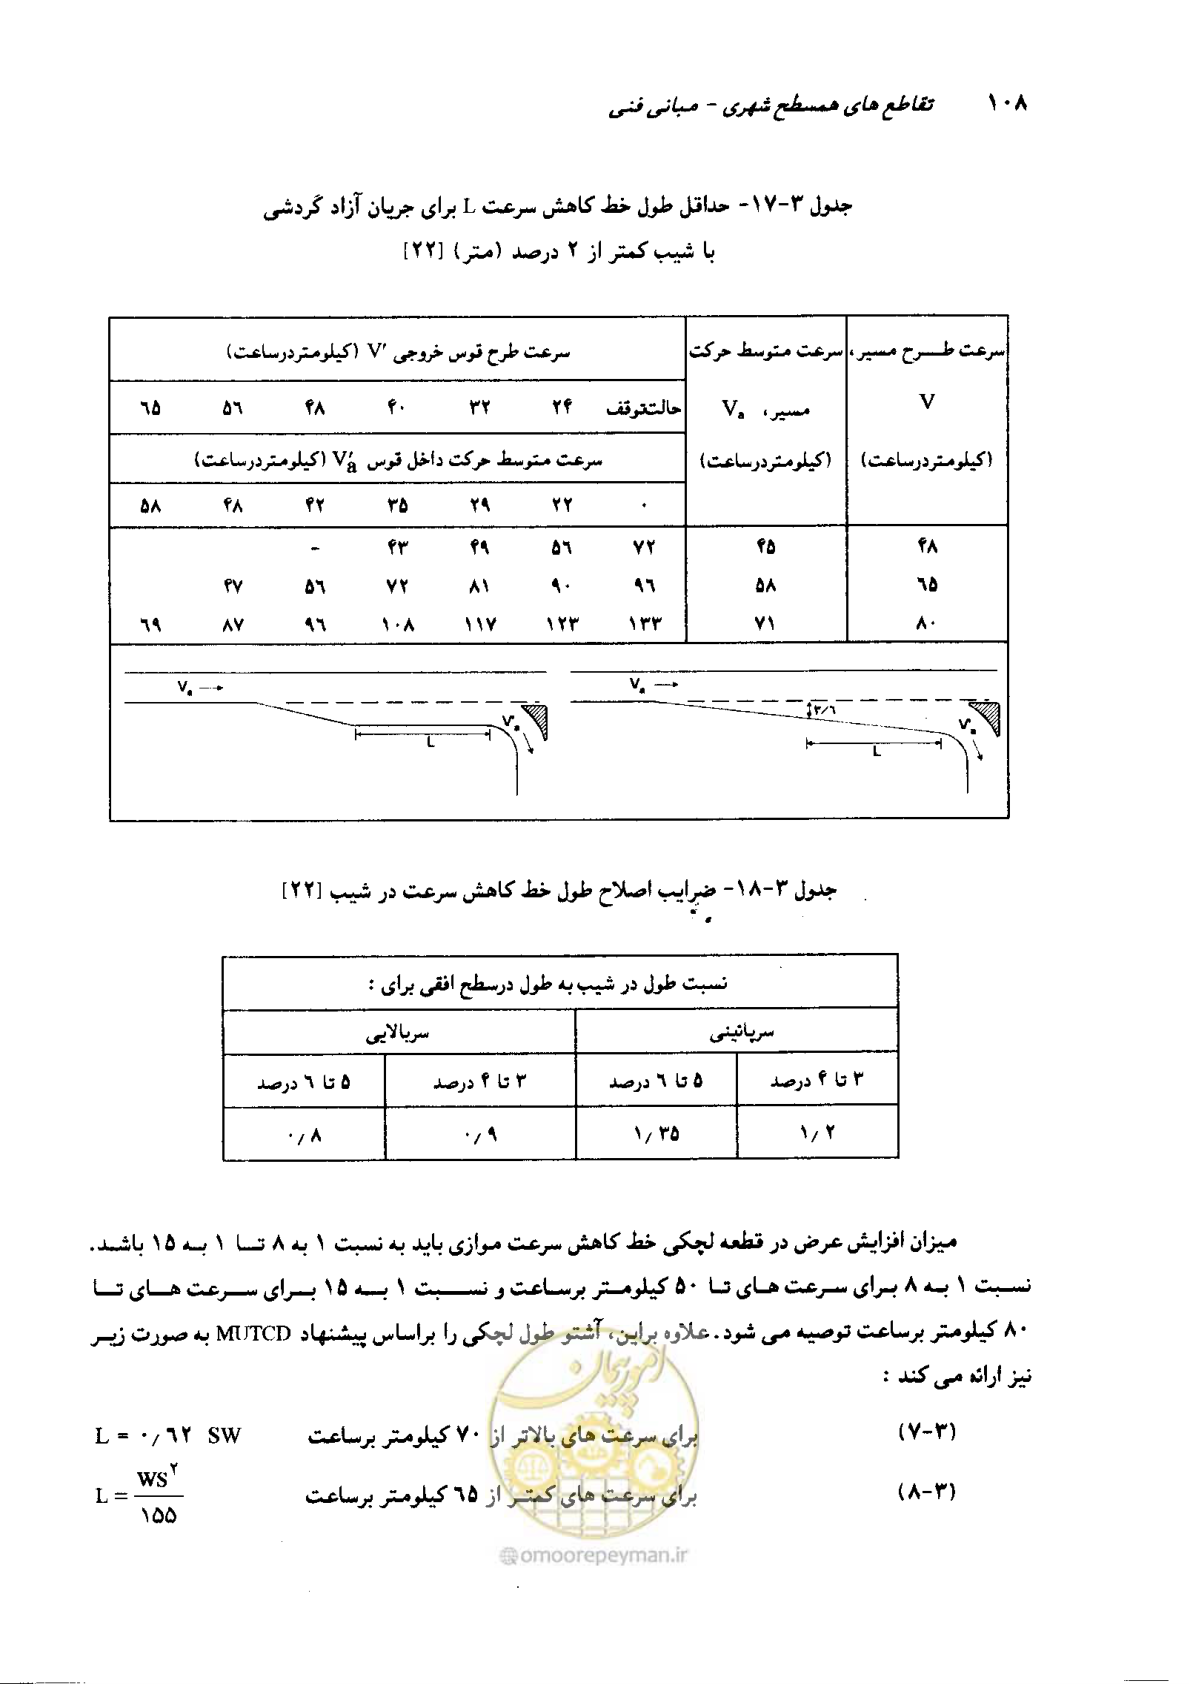 ۱۰۸ تقاطع های همسطح شهری - مبانی فنی
جدول ۳-۱۷- حداقل طول خط کاهش سرعت L برای جریان آزاد گردشی
با شیب کمتر از ۲ درصد (متر) [۲۲]
سرعت طرح مسیر، سرعت متوسط حرکت سرعت طرح قوس خروجی V' (کیلومتردرساعت)
V مسیر، Va حالتتوقف ۲۴ ۳۲ ۴۰ ۴۸ ۵۶ ۶۵
(کیلومتردرساعت) (کیلومتردرساعت) سرعت متوسط حرکت داخل قوس V'a (کیلومتردرساعت)
۰ ۲۲ ۲۹ ۳۵ ۴۲ ۴۸ ۵۸
۴۸ ۴۵ ۷۲ ۵۶ ۴۹ ۴۳ -
۶۵ ۵۸ ۹۶ ۹۰ ۸۱ ۷۲ ۵۶ ۴۷
۸۰ ۷۱ ۱۳۳ ۱۲۳ ۱۱۷ ۱۰۸ ۹۶ ۸۷ ۶۹
Va ۳/۶ V'a L
Va V'a L
جدول ۳-۱۸- ضرایب اصلاح طول خط کاهش سرعت در شیب [۲۲]
نسبت طول در شیب به طول درسطح افقی برای :
سرپائینی سربالایی
۳ تا ۴ درصد ۵ تا ۶ درصد ۳ تا ۴ درصد ۵ تا ۶ درصد
۱/۲ ۱/۳۵ ۰/۹ ۰/۸
میزان افزایش عرض در قطعه لچکی خط کاهش سرعت موازی باید به نسبت ۱ به ۸ تا ۱ به ۱۵ باشد.
نسبت ۱ به ۸ برای سرعت های تا ۵۰ کیلومتر برساعت و نسبت ۱ به ۱۵ برای سرعت های تا
۸۰ کیلومتر برساعت توصیه می شود. علاوه براین، آشتو طول لچکی را براساس پیشنهاد MUTCD به صورت زیر
نیز ارائه می کند :
(۳-۷) برای سرعت های بالاتر از ۷۰ کیلومتر برساعت L = ۰/۶۲ SW
(۳-۸) برای سرعت های کمتر از ۶۵ کیلومتر برساعت L = WS۲ / ۱۵۵
امور پیمان
@omoorepeyman.ir